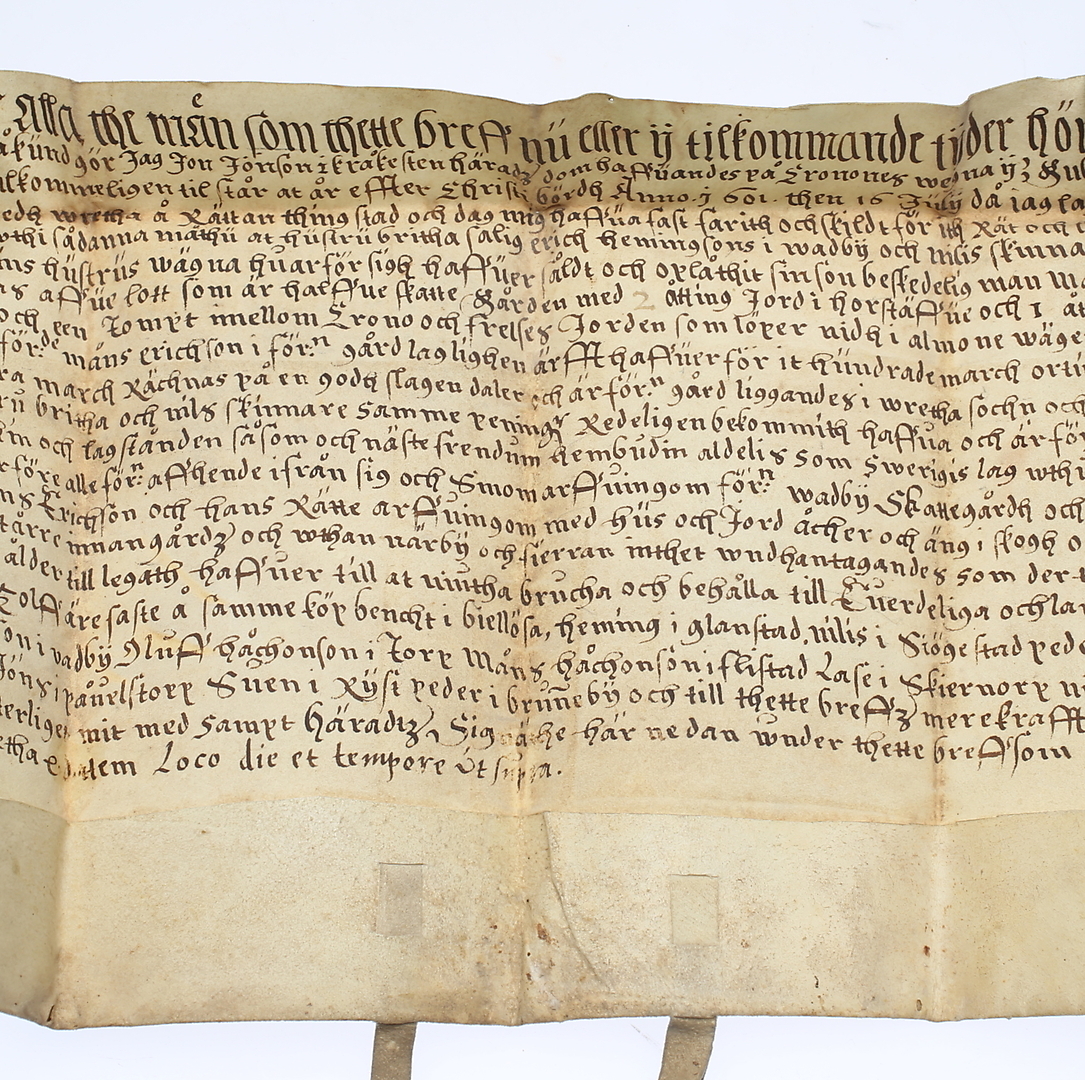 Alla the män som thette breff nü eller ij tilkommande tijder hör
kündgör Jag Jon Jönson i kråkesten häradz dom haffüandes på Cronones wegna ij
ilkommeligen til står at år effter Christi bördh Anno. 1601. then 16 Julij då jag
edh wretha å Rättan thing stad och dag mig haffüa fast farith och skildt för ith Rät och
wthi sådanna måthü at hüstrü britha salig erich hemmigsons i wadbÿ och nilss skinna
ns hüstrüs wägna hüarför sigh haffüer såldt och oplåthit sin son beskedelig man
affüe lott som är halffue skatte gården med 2 åtting Jord i horstäffüe och 1
och een Tompt mellom Crono och frelses Jorden som löper nidh i almone wäge
för:de måns erichson i för:n gård laglighen ärfft haffüer för it hundrade march
march Rächnas på en godh slagen daler och är för:n gård liggandes i wretha sochn och
rü britha och nils skinnare samme peninger Redeligen bekommith haffua och är för
m och lagstånden såsom och näste frendum hembudin aldelis som Swerigis lag wthi
före alle för:n affhende ifrån sig och Sinom arffuingom för:n wadbÿ Skattegårdh och
Erichson och hans Rätte arffuingom med hüs och Jord åcher och äng i skogh
innan gårdz och wthan närbÿ och fierran inthet wndhantagandes som der
ålder till legath haffuer till at niutha brucha och behålla till Euerdeliga och
Tolff äre faste å samme köp bencht i biellösa, heming i glanstad, nilis i Siögestad pede
son i vadbÿ Oluff håchonson i Torp Måns håchonson i flistad Lase i Skiernorp
Jöns i påuelstorp Suen i Rÿsi peder i brunnebÿ och till thette breffz mere krafft
mit med Sampt häradtz Signethe här nedan wnder thette breff som
datem Loco die et tempore üt supra.